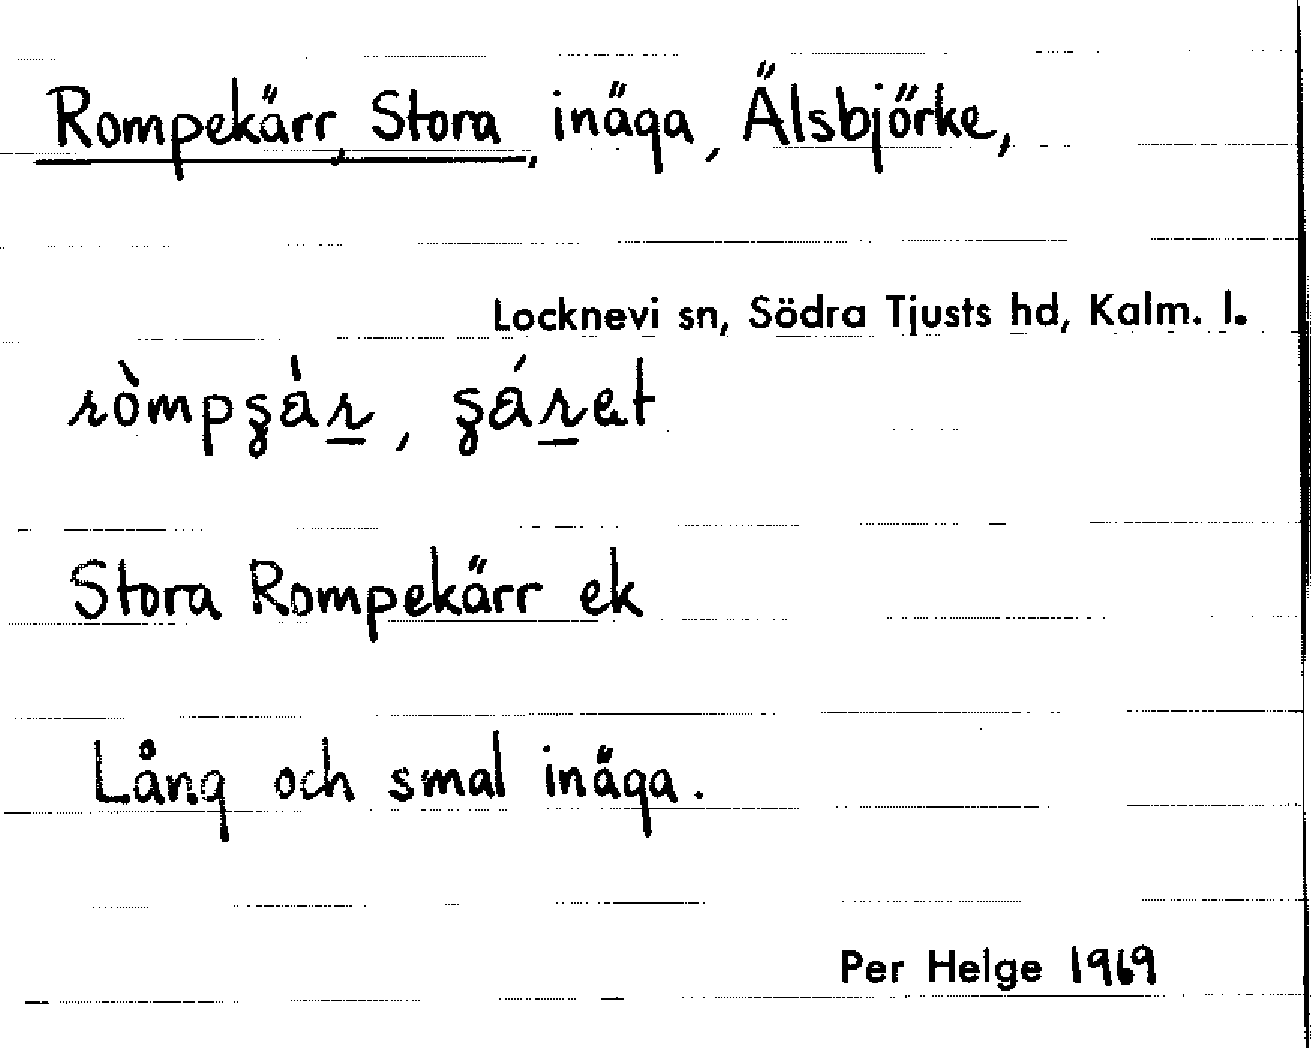 Rompekärr, Stora, inäga, Älsbjörke,
Locknevi sn, Södra Tjusts hd, Kalm. l.
Stora Rompekärr ek
Lång och smal inäga.
Per Helge 1969